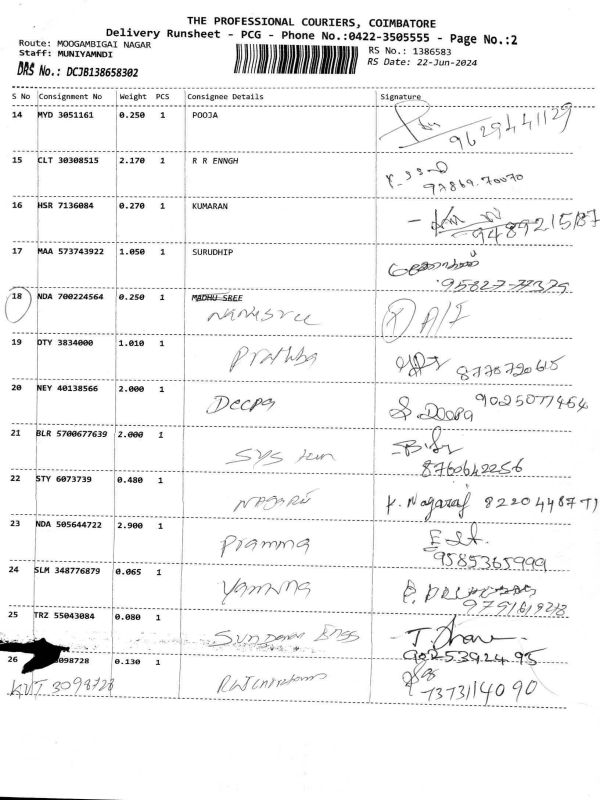 THE PROFESSIONAL COURIERS, COIMBATORE
Delivery Runsheet - PCG - Phone No.:0422-3505555 - Page No.:2
Route: MOOGAMBIGAI NAGAR
Staff: MUNIYAMNDI
RS No.: 1386583
RS Date: 22-Jun-2024
DRS No.: DCJB138658302
S No Consignment No Weight PCS Consignee Details Signature
14 MYD 3051161 0.250 1 POOJA
9629441129
15 CLT 30308515 2.170 1 R R ENNGH
97869.70070
16 HSR 7136084 0.270 1 KUMARAN
9489215187
17 MAA 573743922 1.050 1 SURUDHIP
18 NDA 700224564 0.250 1 MADHU SREE
A/I
19 OTY 3834000 1.010 1 Prathba
8778790615
20 NEY 40138566 2.000 1 Deepa
S. Deepa 9025077464
21 BLR 5700677639 2.000 1
8760642256
22 STY 6073739 0.480 1
K. Nagaraj
23 NDA 505644722 2.900 1 Pramma
9585365999
24 SLM 348776879 0.065 1 Yamuna
25 TRZ 55043084 0.080 1
T.
9025392495
26 098728 0.130 1
KVT 3098728
7373114090